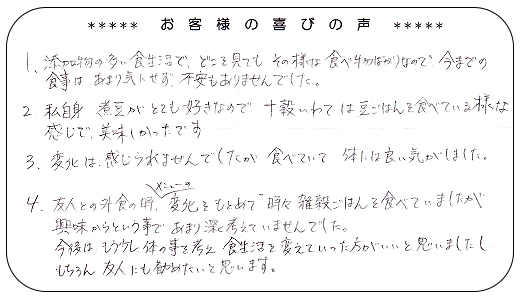 ***** お客様の喜びの声 *****
1. 添加物の多い食生活で、どこを見ても その様な食べ物ばかりなので 今までの
食事は あまり気にせず、不安もありませんでした。
2. 私自身 煮豆がとても好きなので 十穀いわては豆ごはんを食べている様な
感じで、美味しかったです
3. 変化は、感じられませんでしたが 食べていて 体には良い気がしました。
メニューの
4. 友人との外食の時、変化をもとめて 時々 雑穀ごはんを食べていましたが
興味からという事で あまり深く考えていませんでした。
今後は、もう少し体の事を考え 食生活を変えていった方がいいと思いましたし、
もちろん 友人にも勧めたいと思います。